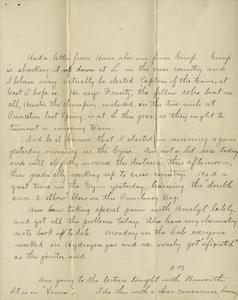 Had a letter from Ham, also one from Gump. Gump
is sharking it up down at L in the cross-country and
I believe may actually be elected Captain of the team, at
least I hope so. He says Fraits, the fellow who beat us
all, Amelia the champion included, on the two mile at
Princeton last Spring, is at L this year, so they ought to
turn out a winning team.
And best know that I started in running again
yesterday morning in the Gym. Am not a bit sore today
and will slightly increase the distance this afternoon,
thus gradually working up to cross country. Had a
great time in the Gym yesterday, learning the double
arm & elbow blow on the Punching Bag.
Am taking special pains with Analyt lately,
and got all the problems today. Also have my chemistry
note book up to date. Monday in the Lab everyone
worked on Hydrogen gas and we nearly got "afixiated"
as the janitor said.
P.M.
Am going to the lecture tonight with Bosworth.
It is on "Venice". I do this with a clear conscience, having